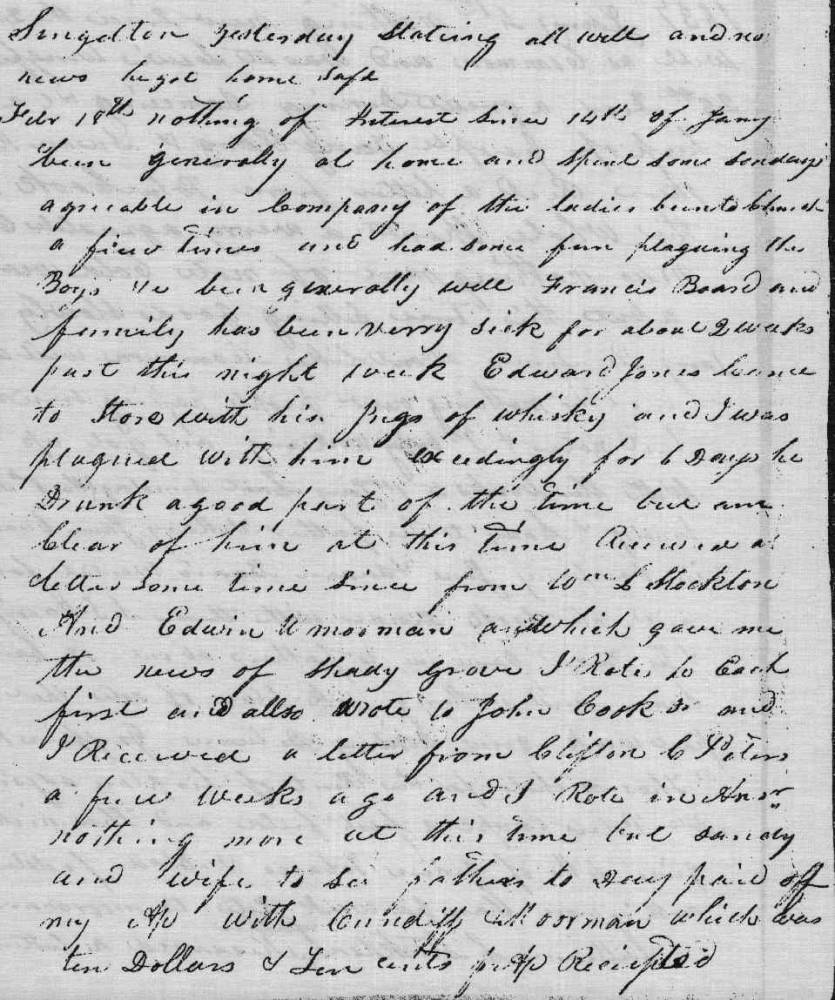 Singelton yesterday Stateing all well and no
news he got home safe
Febr 18th nothing of Interest Since 14th of Jany
been generally at home and Spent some sondays
agreeable in Company of the ladies been to Church
a fiew Times and had some fun plaguing the
Boys Ive been generally well Francis Board and
fammily has been verry sick for about 2 weeks
past this night week Edward Jones came
to Store with his Jugs of whisky and I was
plagued with him exceedingly for 6 Days he
Drunk a good part of the Time but am
Clear of him at this Time Received a
letter some time since from Wm L Stockton
And Edwin U moorman which gave me
the news of Shady Grove I Rote to Each
first and allso wrote to John Cook sr and
I Received a letter from Clifton C Peters
a few weeks ago and I Rote in Ansr
nothing more at this time but sandy
and wife to see fathers to Day paid off
my A/p with Cundiff & Moorman which was
ten Dollars & Ten cents pr A/p Recipted